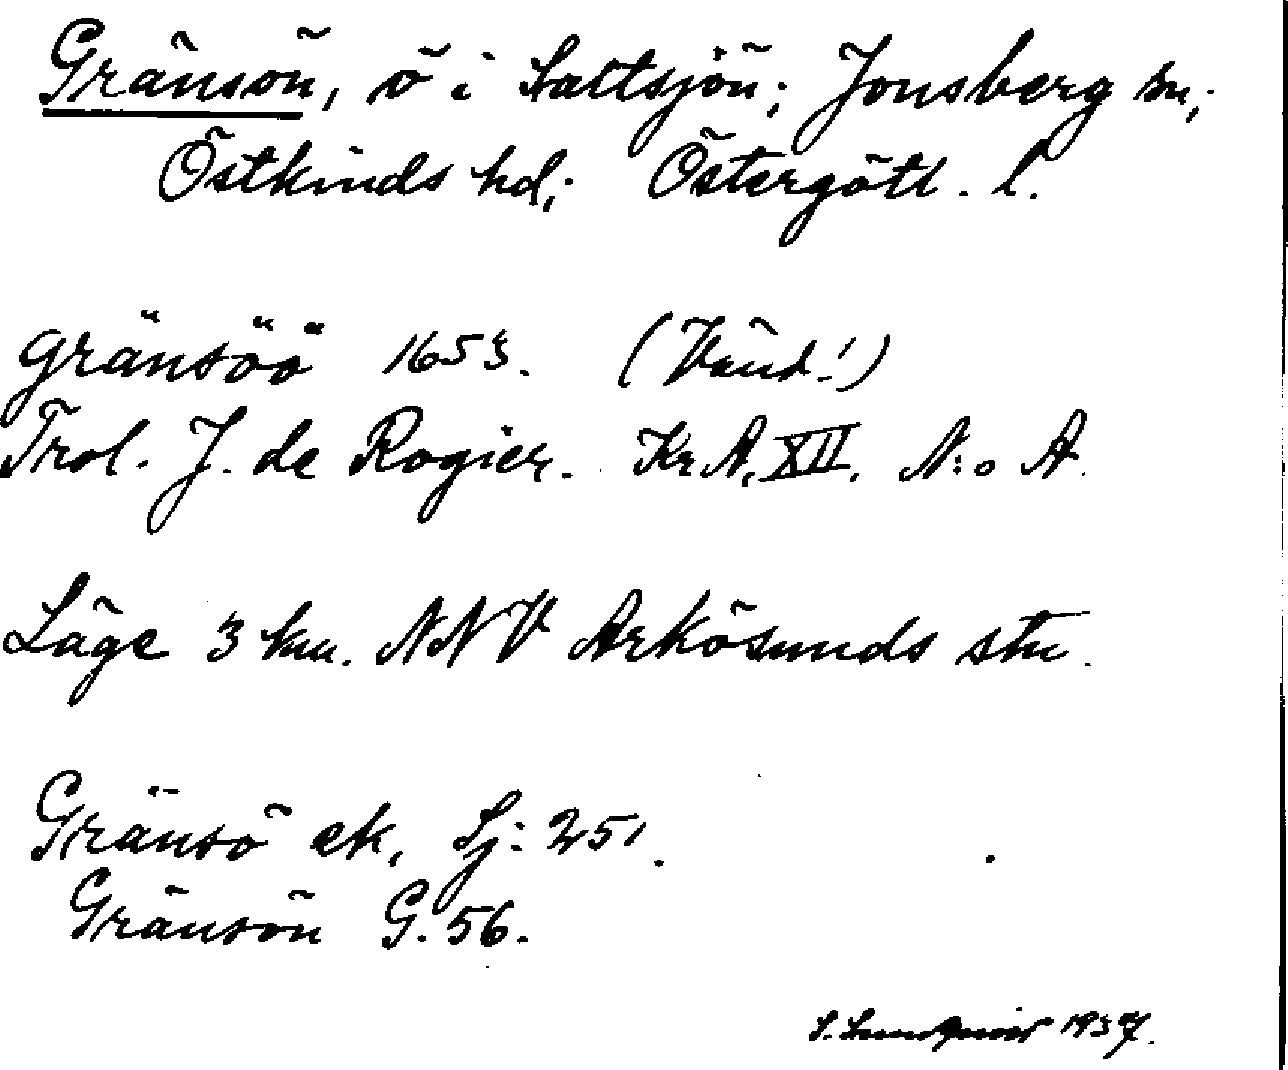 Gränsön, ö i Saltsjön; Jonsberg sn;
Östkinds hd; Östergötl. l.
gränsöö 1653. (Vänd!)
Trol. J. de Rogier. Kr.A. XII. N:o A.
Läge 3 km. NNV Arkösunds stn.
Gränsö ek. Sj: 251.
Gränsön G. 56.
S. Lundqvist 1937.